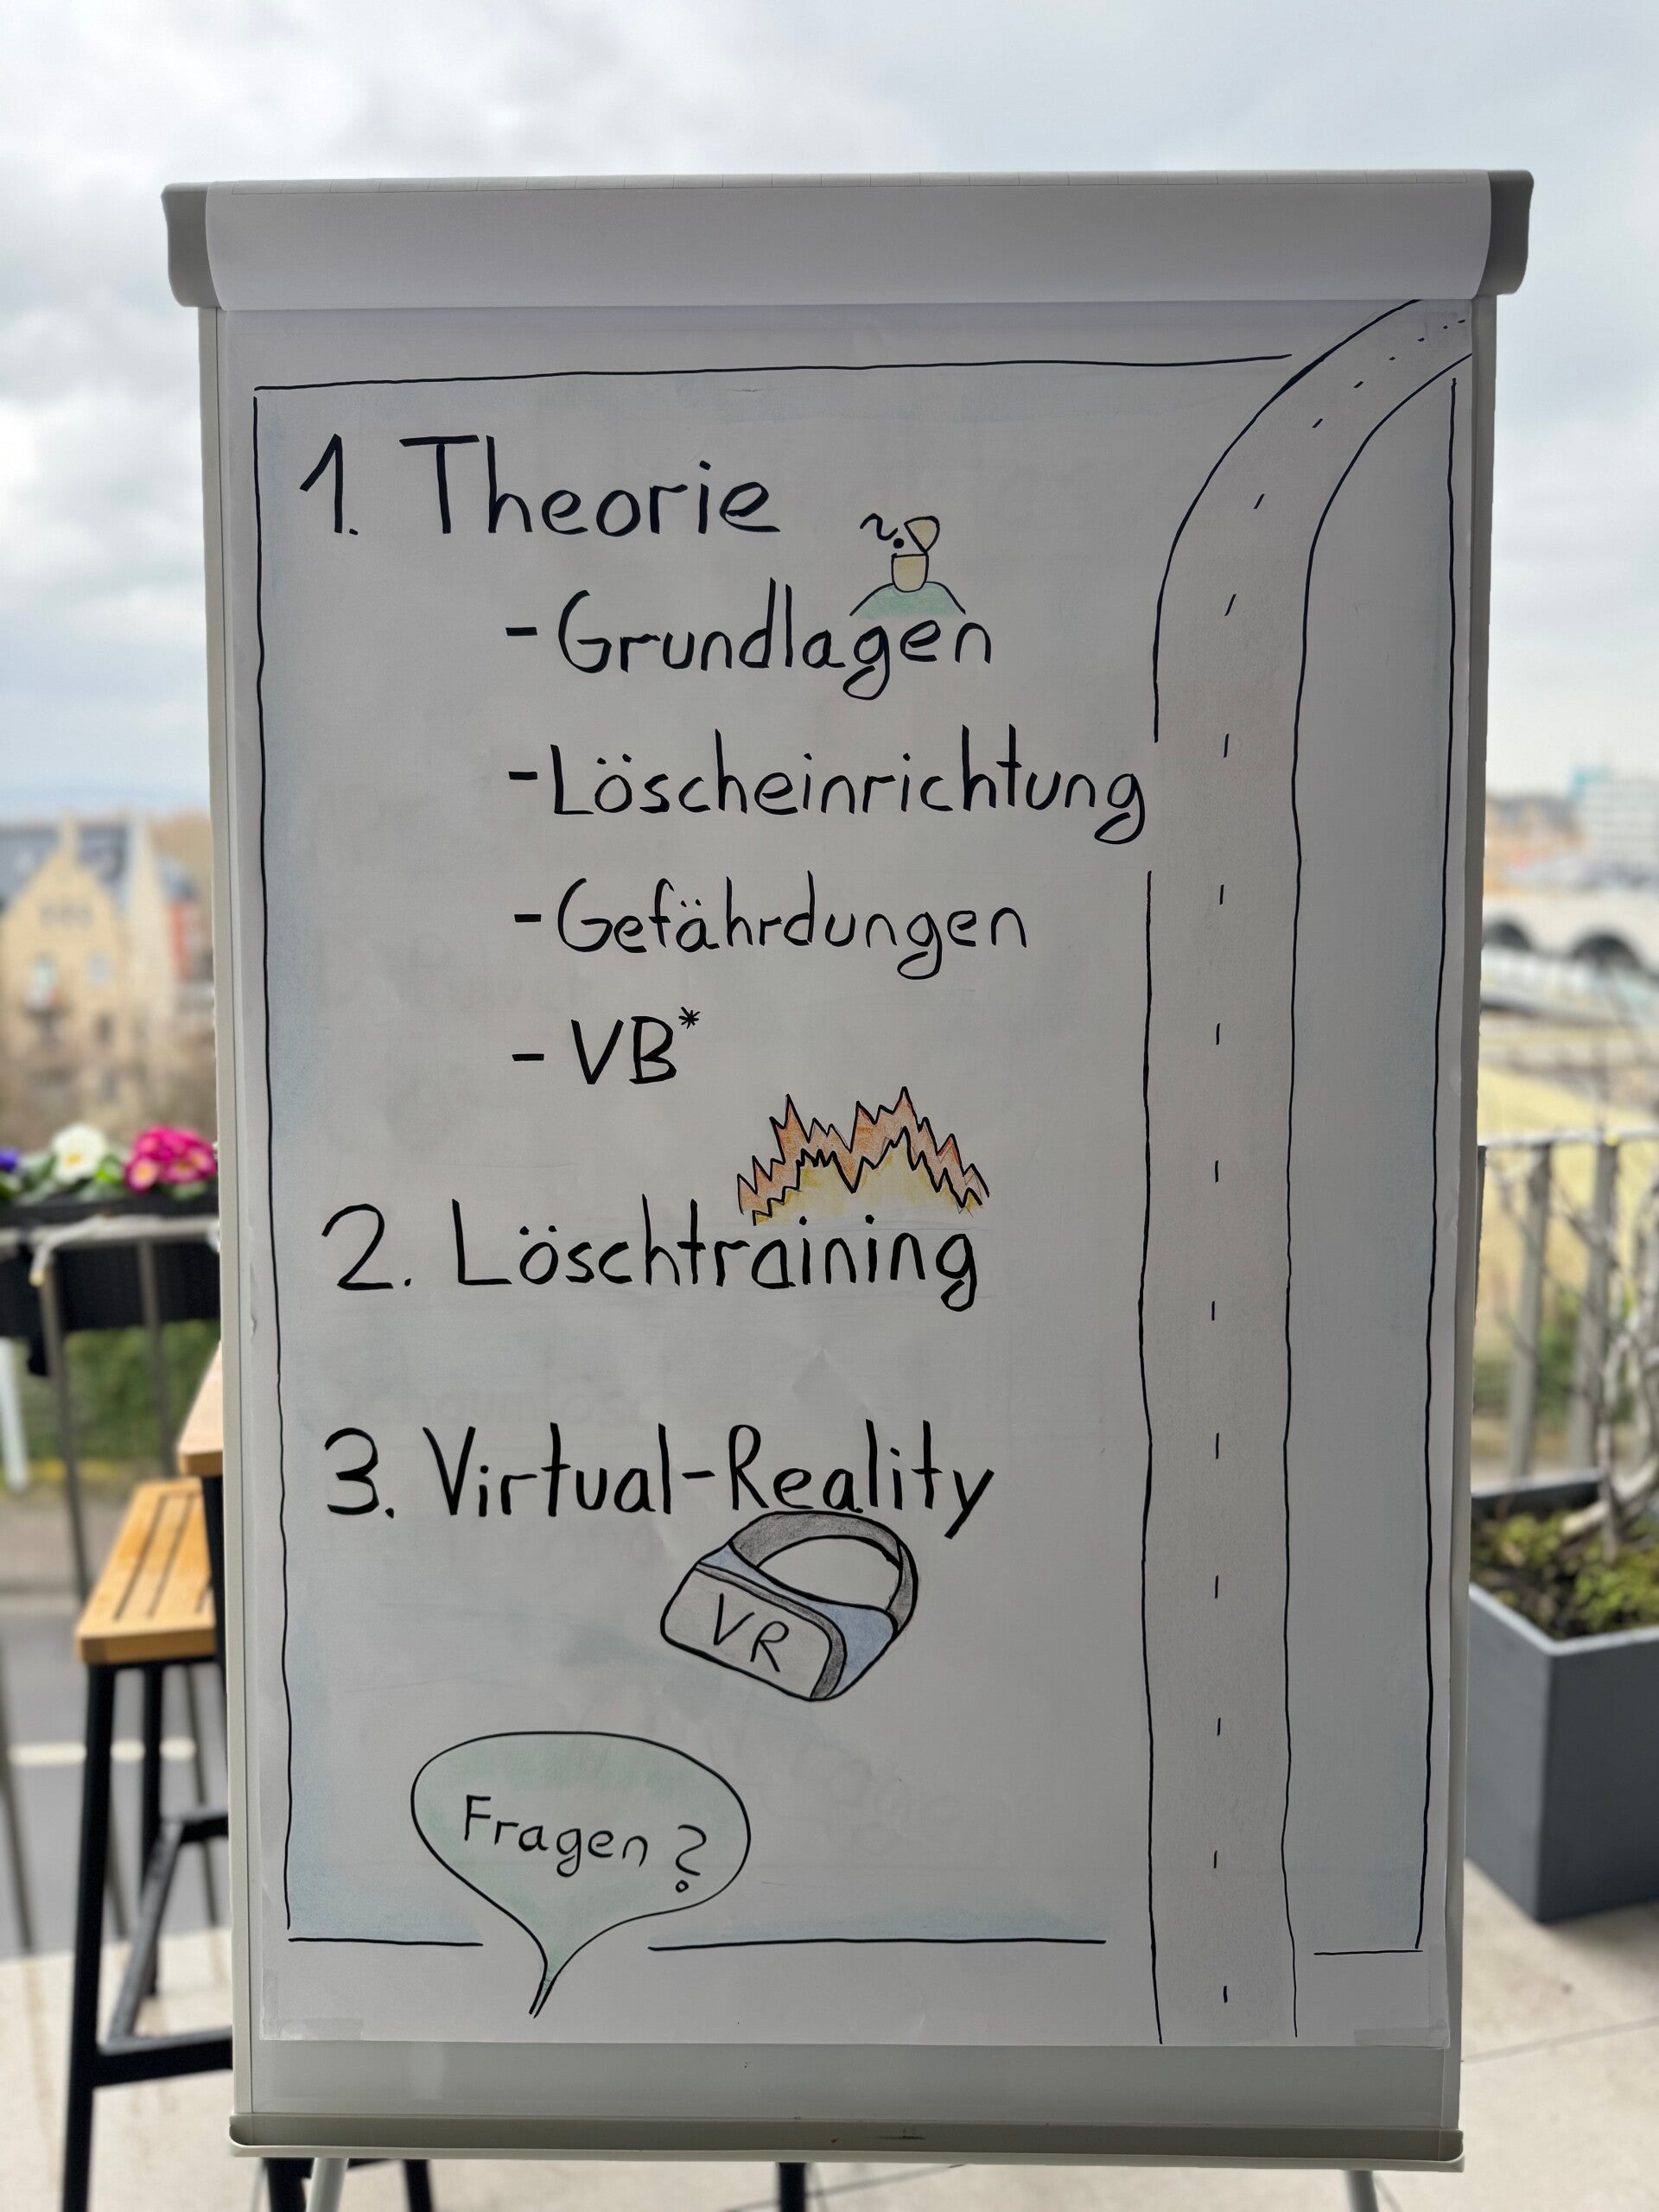 1. Theorie
- Grundlagen
- Löscheinrichtung
- Gefährdungen
- VB*
2. Löschtraining
3. Virtual-Reality
VR
Fragen?